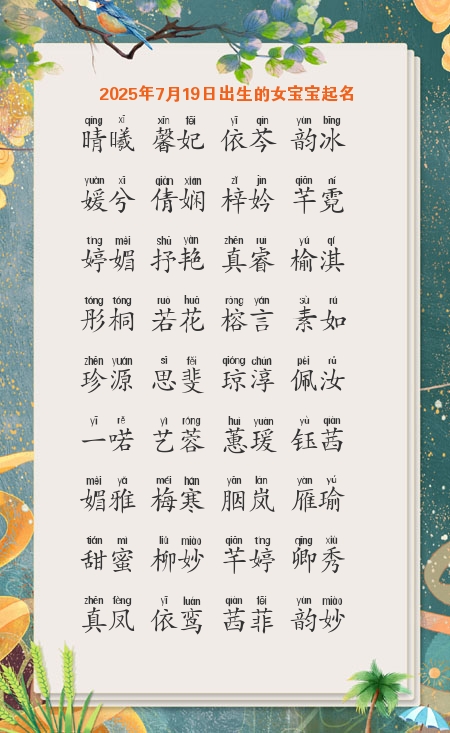 2025年7月19日出生的女宝宝起名
qíng xī xīn fēi yī qín yùn bīng
晴曦 馨妃 依芩 韵冰
yuàn xī qiàn xián zǐ jìn qiān ní
媛兮 倩娴 梓妗 芊霓
tíng mèi shū yàn zhēn ruì yú qí
婷媚 抒艳 真睿 榆淇
tóng tóng ruò huā róng yán sù rú
彤桐 若花 榕言 素如
zhēn yuán sī fěi qióng chún pèi rǔ
珍源 思斐 琼淳 佩汝
yī rě yì róng huì yuàn yù qiàn
一喏 艺蓉 蕙瑗 钰茜
mèi yǎ méi hán yān lán yàn yú
媚雅 梅寒 胭岚 雁瑜
tián mì liǔ miào qiān tíng qīng xiù
甜蜜 柳妙 芊婷 卿秀
zhēn fèng yī luán qiàn fēi yùn miào
真凤 依鸾 茜菲 韵妙